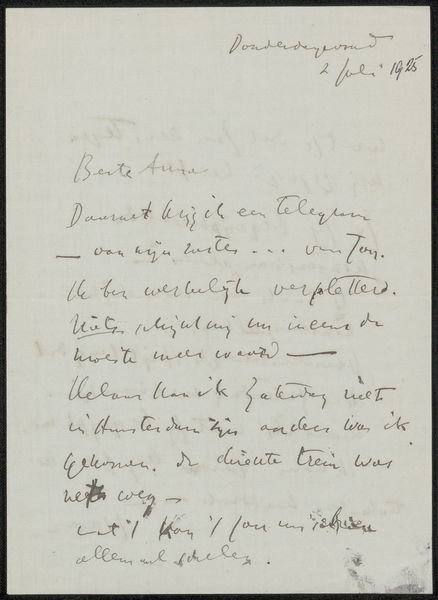 Donderdagavond
2 Juli 1925
Beste Anna
Daarnet krijg ik een telegram
— van mijn zuster ... van Jan.
Ik ben werkelijk verpletterd.
Niets schijnt mij nu ineens de
moeite meer waard —
Helaas kan ik Zaterdag niet
in Amsterdam zijn anders was ik
gekomen. de directe trein was
weg —
allemaal